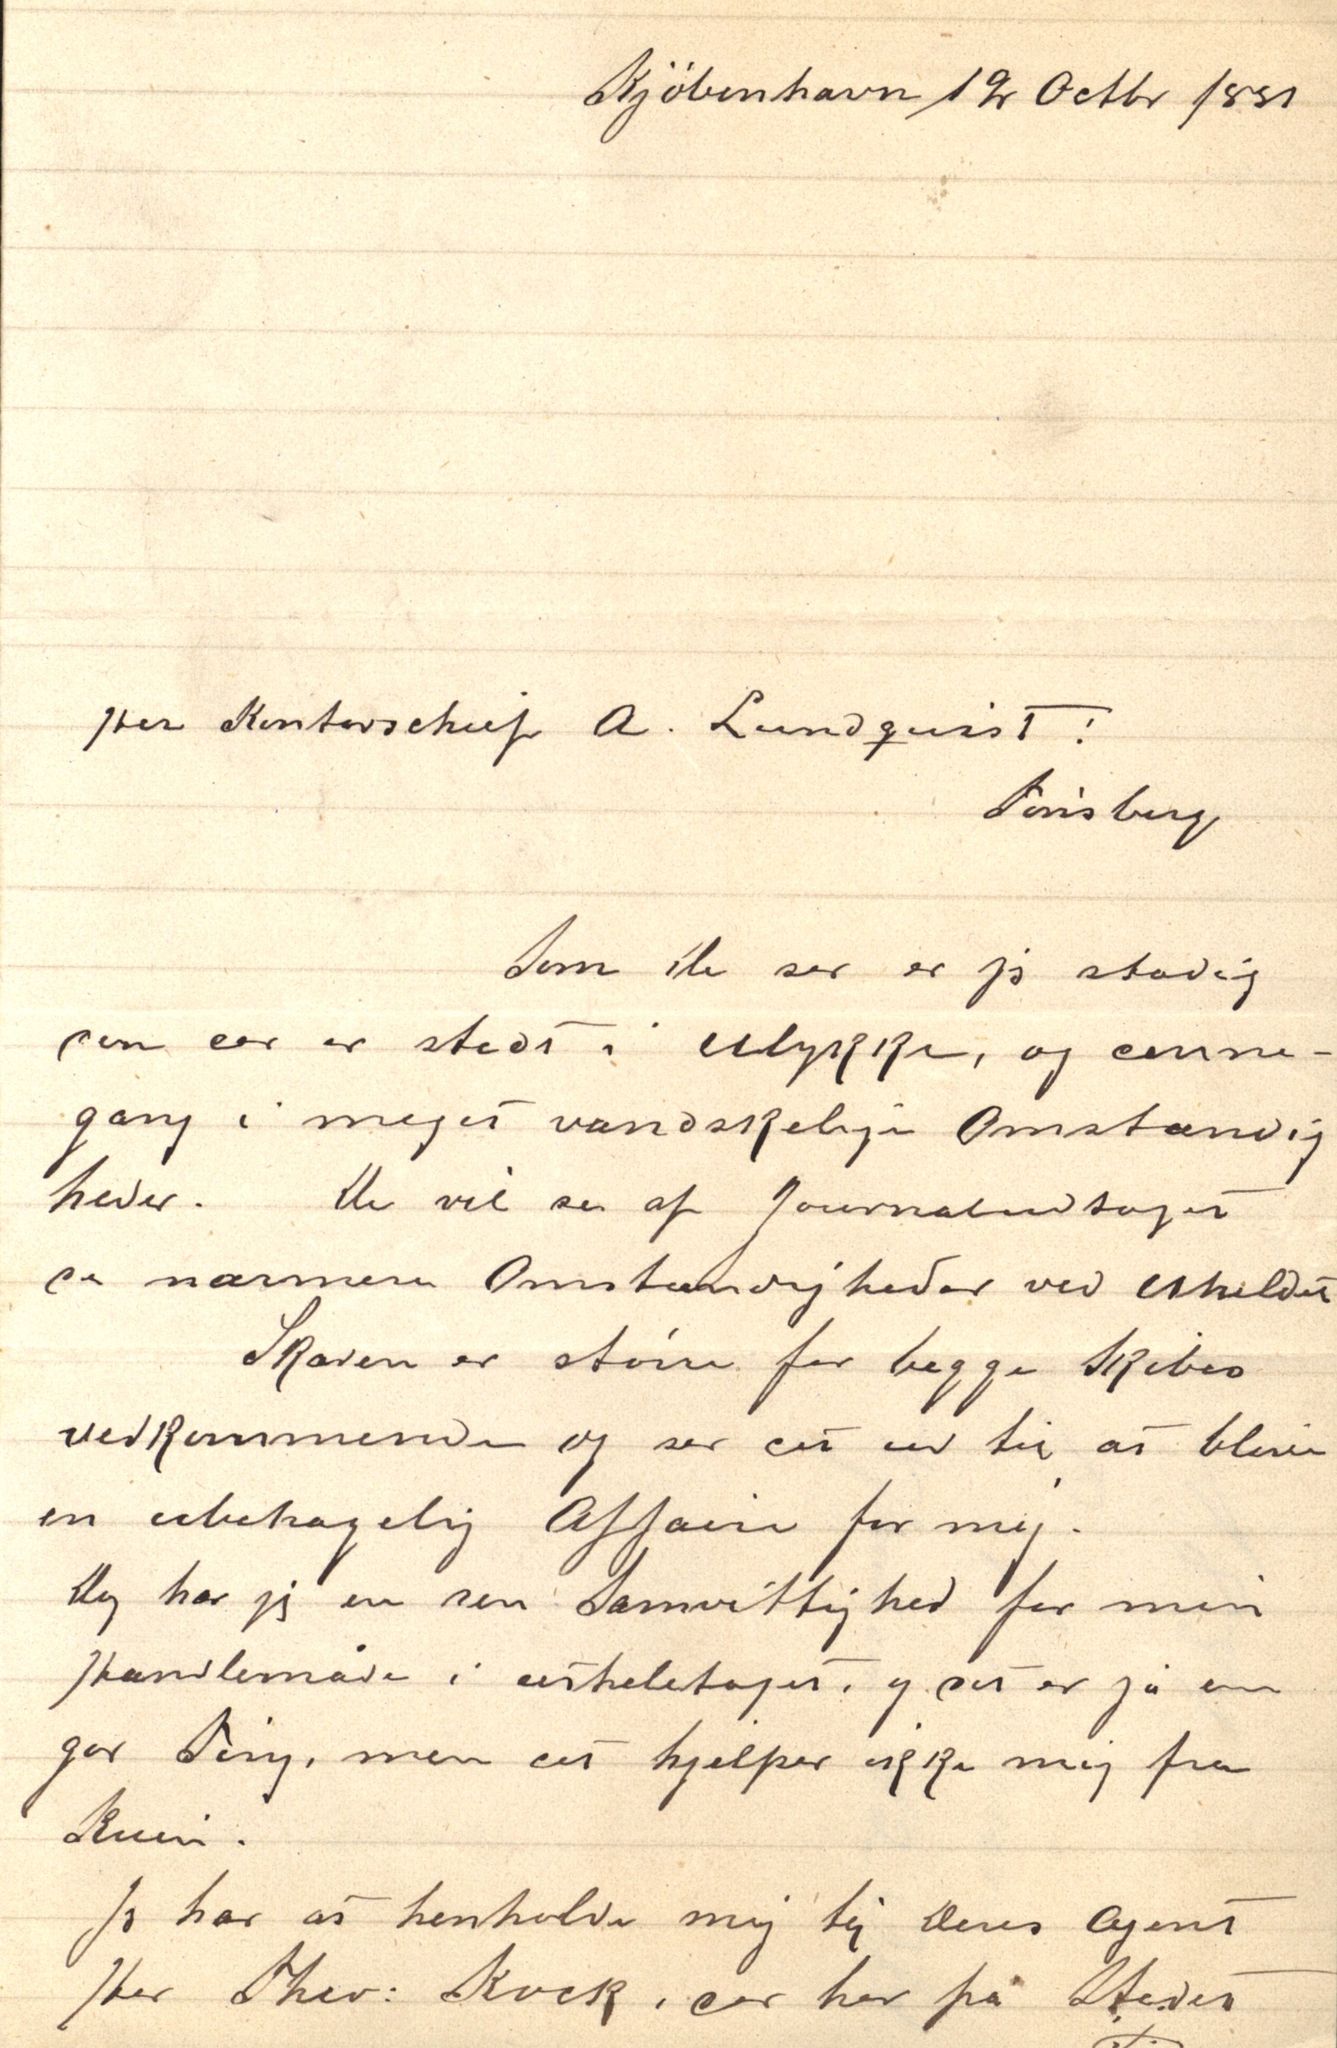 Kjöbenhavn 12r Octbr 1881
Her Kontorschef A. Lundquist!
Tönsberg
Som De ser er jeg stadig
den der er stedt i Ulykke, og denne-
gang i meget vandskelige Omstændig
heder. De vil se af Journaludtoget
de nærmere Omstændigheder ved Uheldet
Skaden er större for begge Skibes
vedkommende og ser det ud til at blive
en ubehagelig Affaire for mig.
Dog har jeg en ren Samvittighed for min
Handlemåde i det heletaget, og det er jo en
god Ting, men det hjelper ikke mig fra
Ruin.
Jeg har at henholde mig til Deres Agent
Her Theo: Kock, der her på Stedet